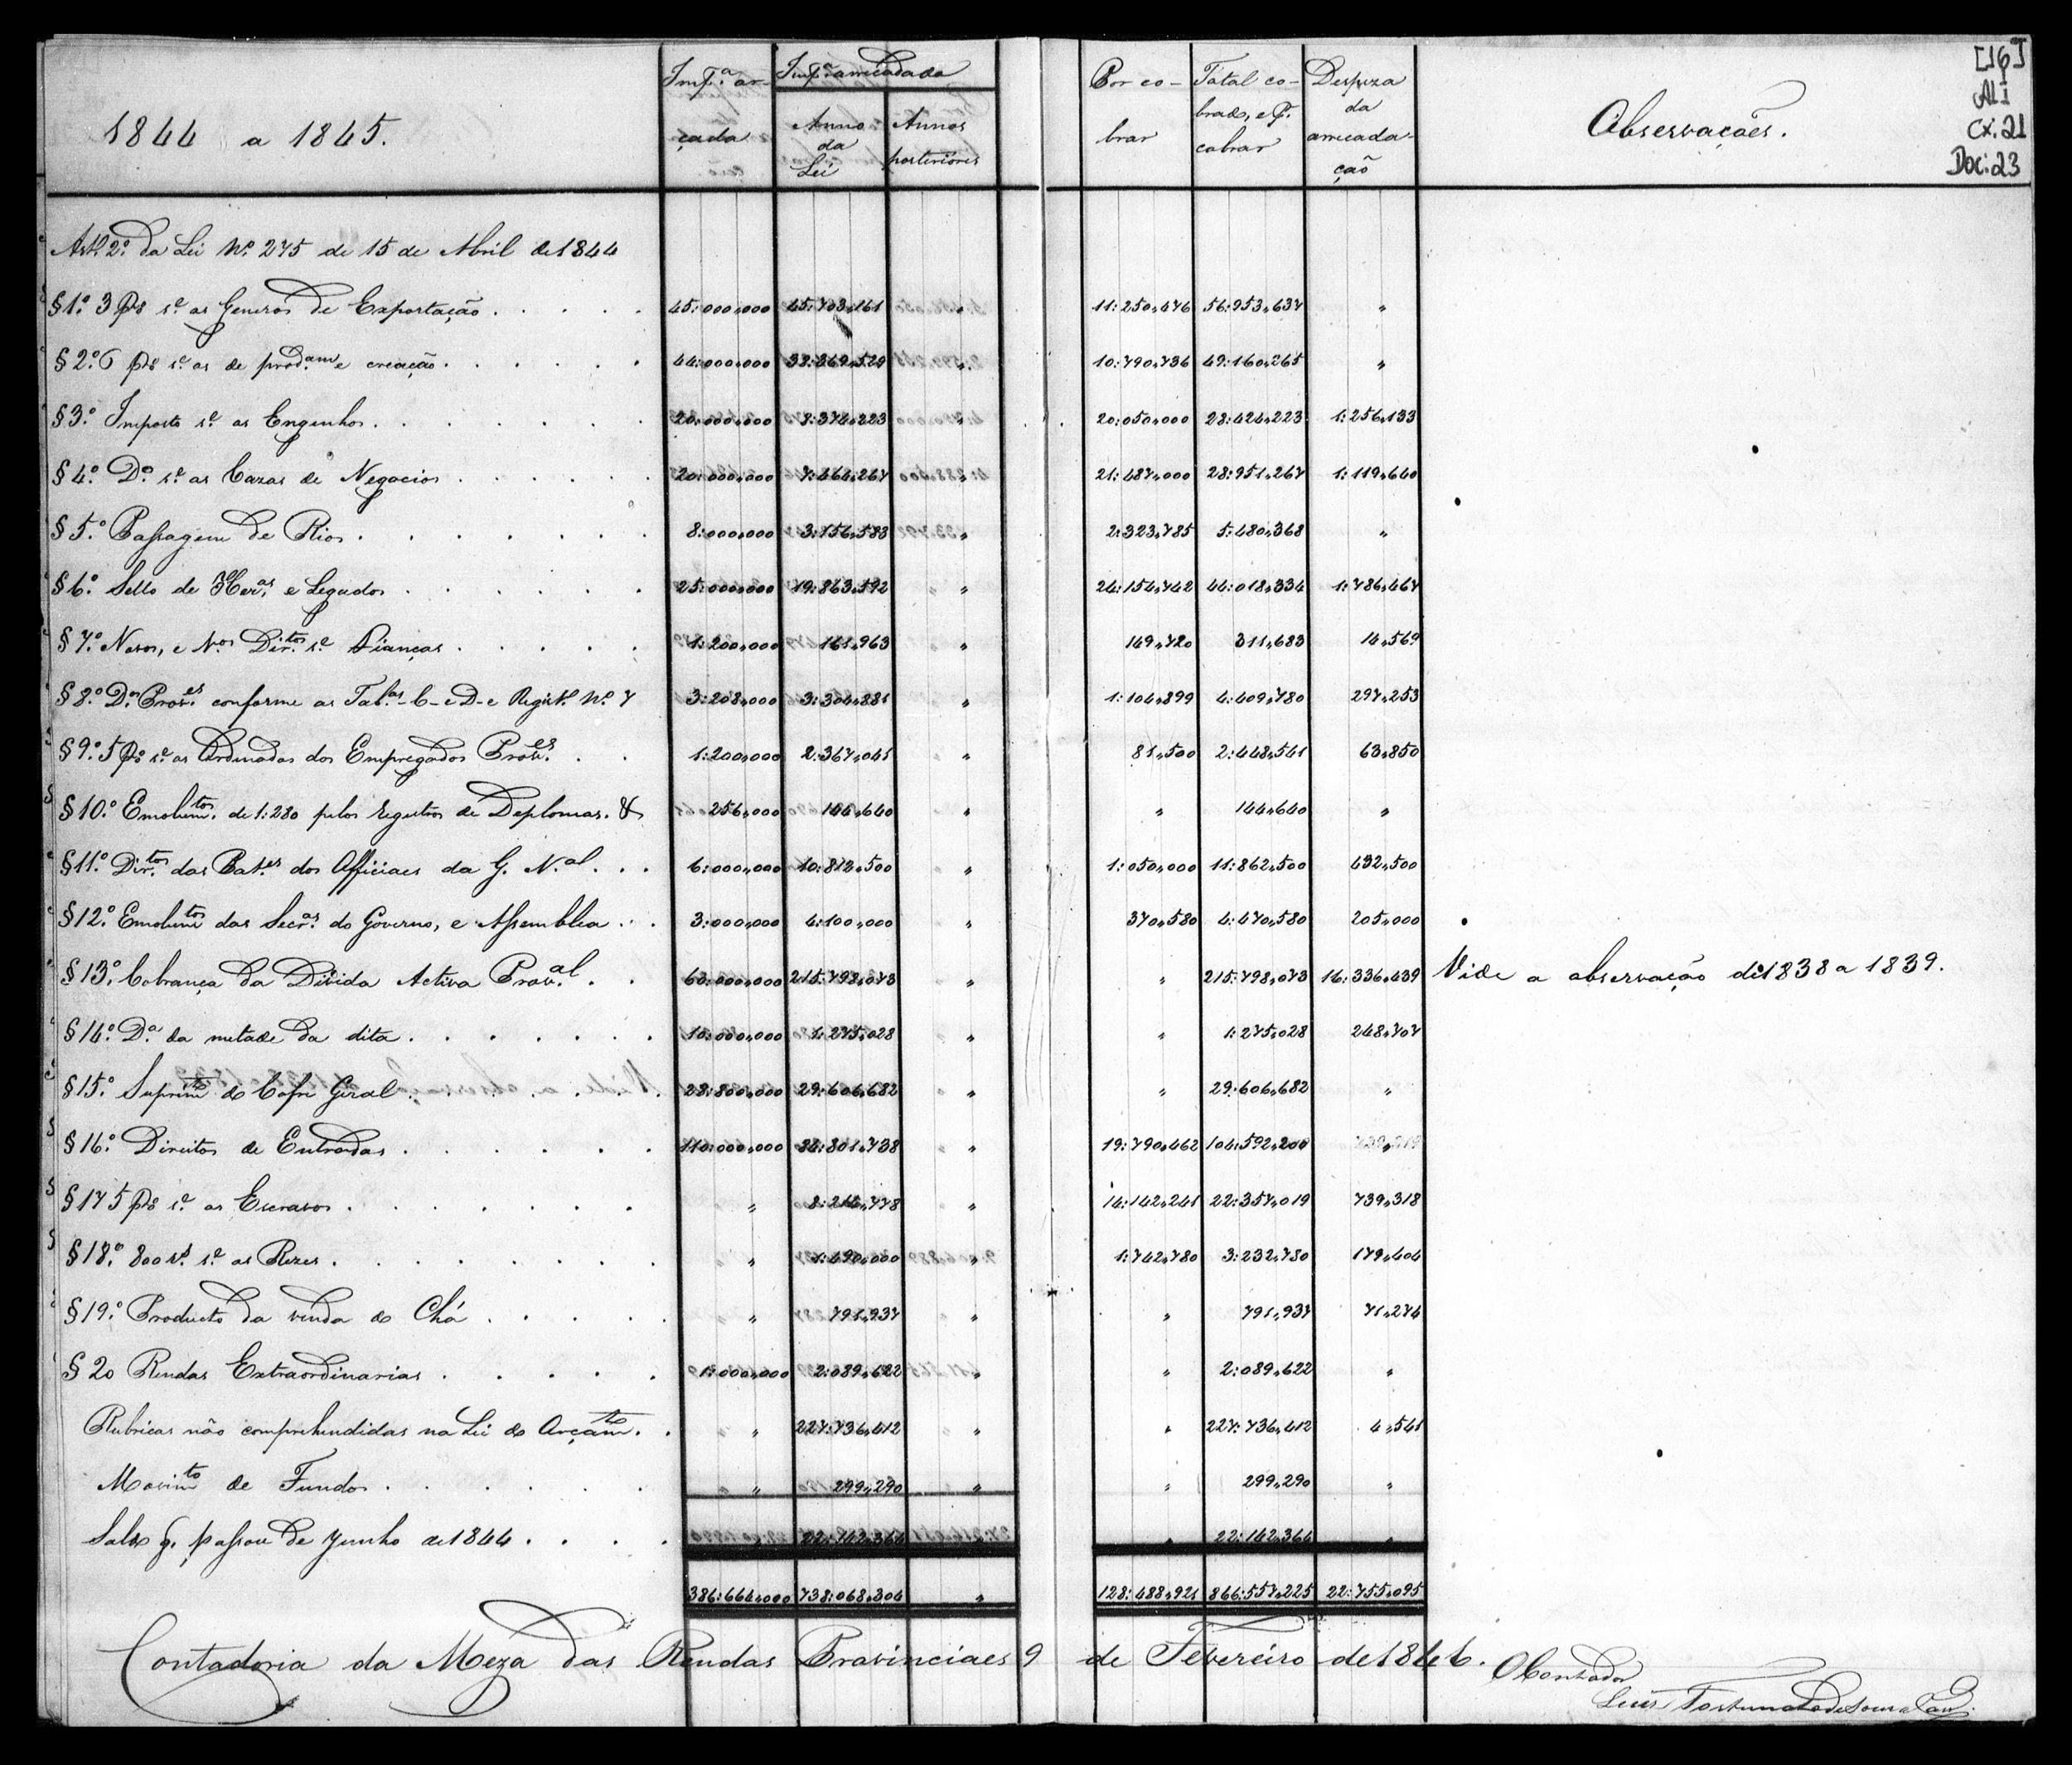 [16]
ALI
Cx. 21
Doc: 23
1844 a 1845.
Imp.ª or-
çada
Imp.ª arrecadada
Anno da Lei
Annos posteriores
Por co-
brar
Total co-
brado, e P.
cobrar
Despeza da arrecada-
ção
Observações.
Art.º 2.º da Lei N.º 275 de 15 de Abril de 1844
§ 1.º 3 p% s.e os Generos de Exportação . . . . 45:000,000 45:703,161 " 11:250,476 56:953,637 "
§ 2.º 6 p% s.e os de prod.am e creação . . . . . 44:000,000 38:369,529 " 10:790,736 49:160,265 "
§ 3.º Imposto s.e os Engenhos . . . . . . 20:000,000 8:374,223 " 20:050,000 28:424,223 1:256,133
§ 4.º D.º s.e as Cazas de Negocios . . . . . 20:000,000 7:464,267 " 21:487,000 28:951,267 1:119,640
§ 5.º Passagem de Rios . . . . . . 8:000,000 3:156,583 " 2:323,785 5:480,368 "
§ 6.º Sello de Her.as e Legados . . . . . 25:000,000 19:863,592 " 24:154,742 44:018,334 1:786,467
§ 7.º Novos, e V.os Dir.tos s.e Fianças . . . . . 1:200,000 161,963 " 149,720 311,683 14,569
§ 8.º D.os Prov.es conforme as Tab.as - C - e D - e Regist.º N.º 7 3:208,000 3:304,881 " 1:104,899 4:409,780 297,253
§ 9.º 5 p% s.e os Ordenados dos Empregados Prov.es . . 1:200,000 2:367,041 " 81,500 2:448,541 63,850
§ 10.º Emolum.tos de 1:280 pelos registros de Deplomas. & 256,000 144,640 " " 144,640 "
§ 11.º Dir.tos das Pat.es dos Officiaes da G. N.al . . . 6:000,000 10:812,500 " 1:050,000 11:862,500 432,500
§ 12.º Emolum.tos das Secr.as do Governo, e Assemblea . . 3:000,000 4:100,000 " 370,580 4:470,580 205,000
§ 13.º Cobrança da Divida Activa Prov.al . . 60:000,000 215:798,073 " " 215:798,073 16:336,439 Vide a observação de 1838 a 1839.
§ 14.º D.ª da metade da dita . . . . . . 10:000,000 1:275,028 " " 1:275,028 248,707
§ 15.º Suprim.to do Cofre Geral . . . . . 28:800,000 29:606,682 " " 29:606,682 "
§ 16.º Direitos de Entradas . . . . . 110:000,000 84:801,738 " 19:790,462 104:592,200 "
§ 17 5 p% s.e os Escravos . . . . . . " 8:214,778 " 14:142,241 22:357,019 739,318
§ 18.º 800 r.s s.e as Rezes . . . . . . " 1:490,000 " 1:742,780 3:232,780 179,404
§ 19.º Producto da venda do Chá . . . . . " 791,937 " " 791,937 71,274
§ 20 Rendas Extraordinarias . . . . . 1:000,000 2:089,622 " " 2:089,622 "
Rubricas não comprehendidas na Lei do Orçam.to . . " 227:736,412 " " 227:736,412 4,541
Movim.to de Fundos . . . . . . " 299,290 " " 299,290 "
Saldo q. passou de Junho de 1844 . . . . 22:142,364 " " 22:142,364 "
386:664,000 738:068,304 " 128:488,921 866:557,225 22:755,095
Contadoria da Meza das Rendas Provinciaes 9 de Fevereiro de 1846.
O Contador
Luis Fortunato de Souza